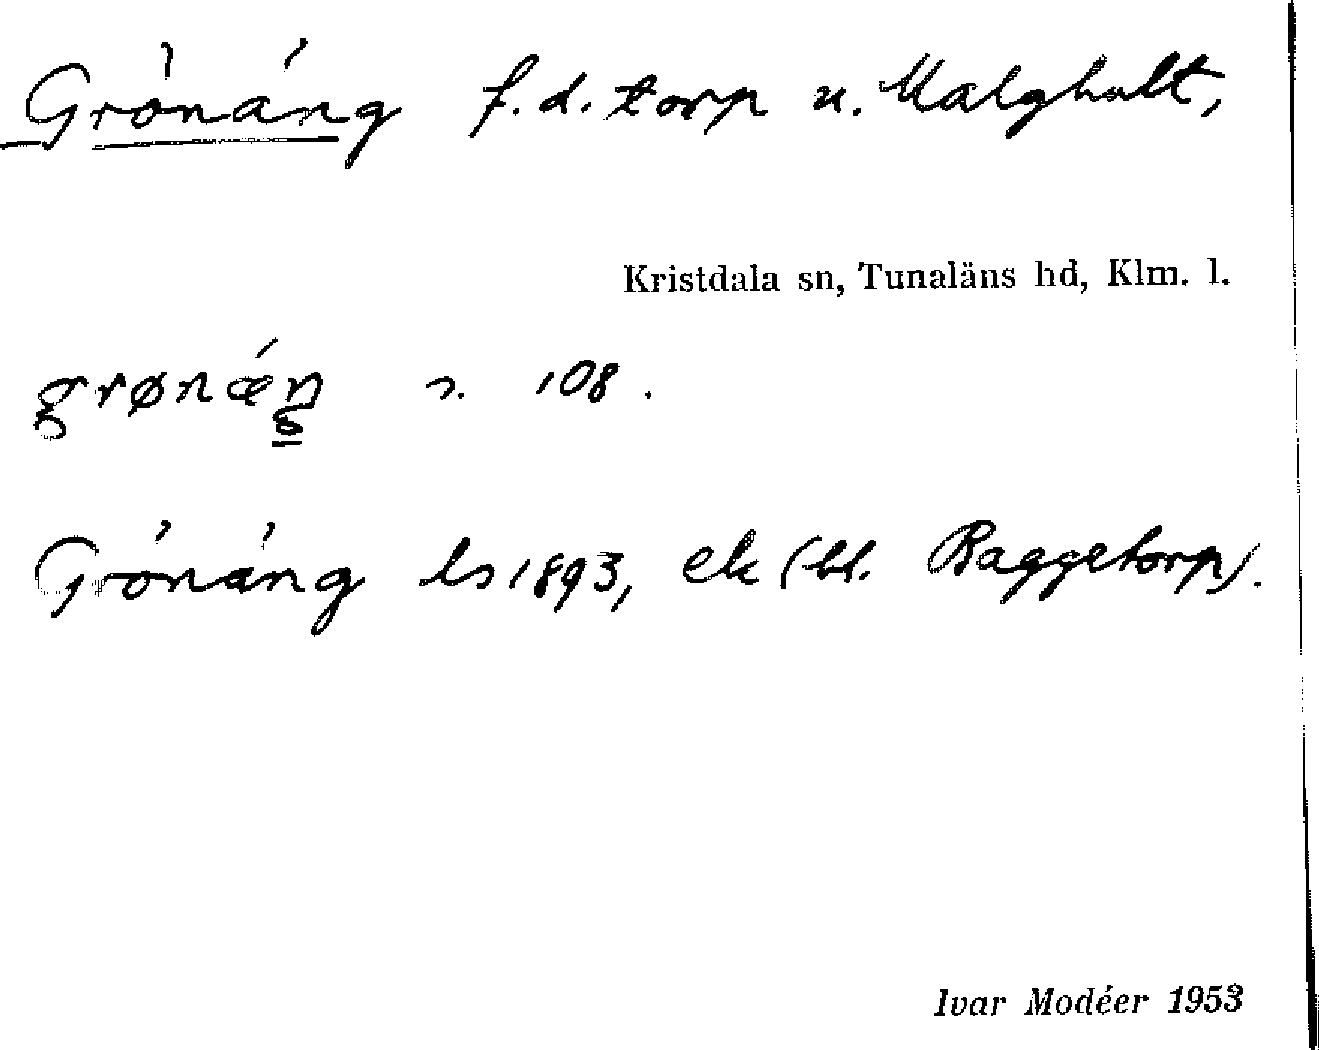 Grönäng f. d. torp u. Malghult,
Kristdala sn, Tunaläns hd, Klm. l.
grønǽŋ s. 108.
Grönäng ls 1893, ek (bl. Baggetorp).
Ivar Modéer 1953